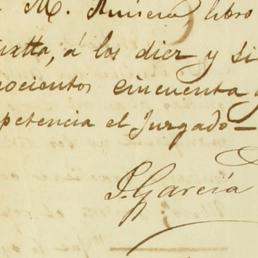 M. Munera libro
uxtla, á los diez y si
nocientos cincuenta y
petencia el Juzgado—
J. García